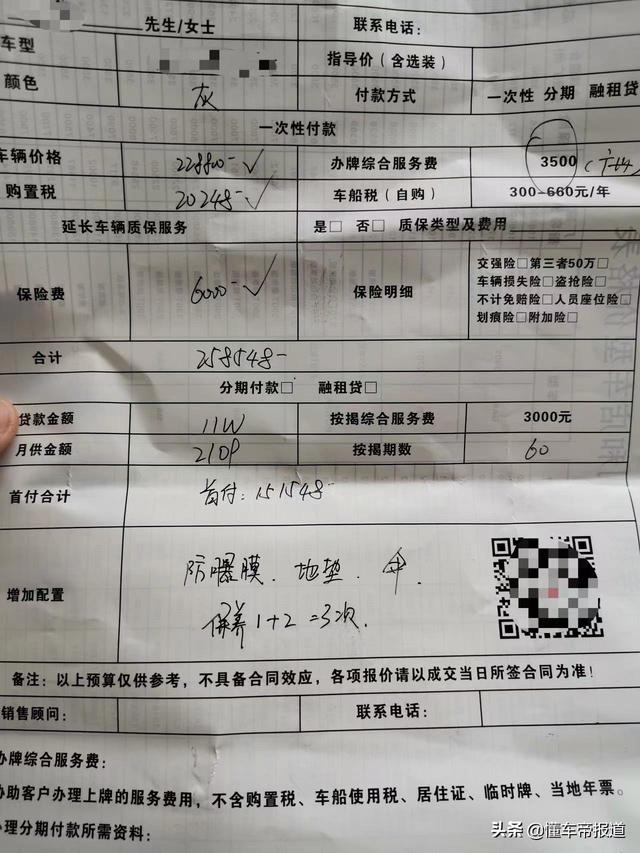 先生/女士 联系电话：
车型 指导价（含选装）
颜色 灰 付款方式 一次性 分期 融租贷
一次性付款
车辆价格 228800- ✓ 办牌综合服务费 3500
购置税 20248- ✓ 车船税（自购） 300-660元/年
延长车辆质保服务 是□ 否□ 质保类型及费用
保险费 6000- ✓ 保险明细
交强险□第三者50万□
车辆损失险□盗抢险□
不计免赔险□人员座位险□
划痕险□附加险□
合计 258548-
分期付款□ 融租贷□
贷款金额 11W 按揭综合服务费 3000元
月供金额 按揭期数 60
首付合计 首付：151548-
增加配置 防曝膜、地垫、伞、
保养1+2=3次.
备注：以上预算仅供参考，不具备合同效应，各项报价请以成交当日所签合同为准！
销售顾问： 联系电话：
办牌综合服务费：
协助客户办理上牌的服务费用，不含购置税、车船使用税、居住证、临时牌、当地年票。
办理分期付款所需资料：
头条 @懂车帝报道